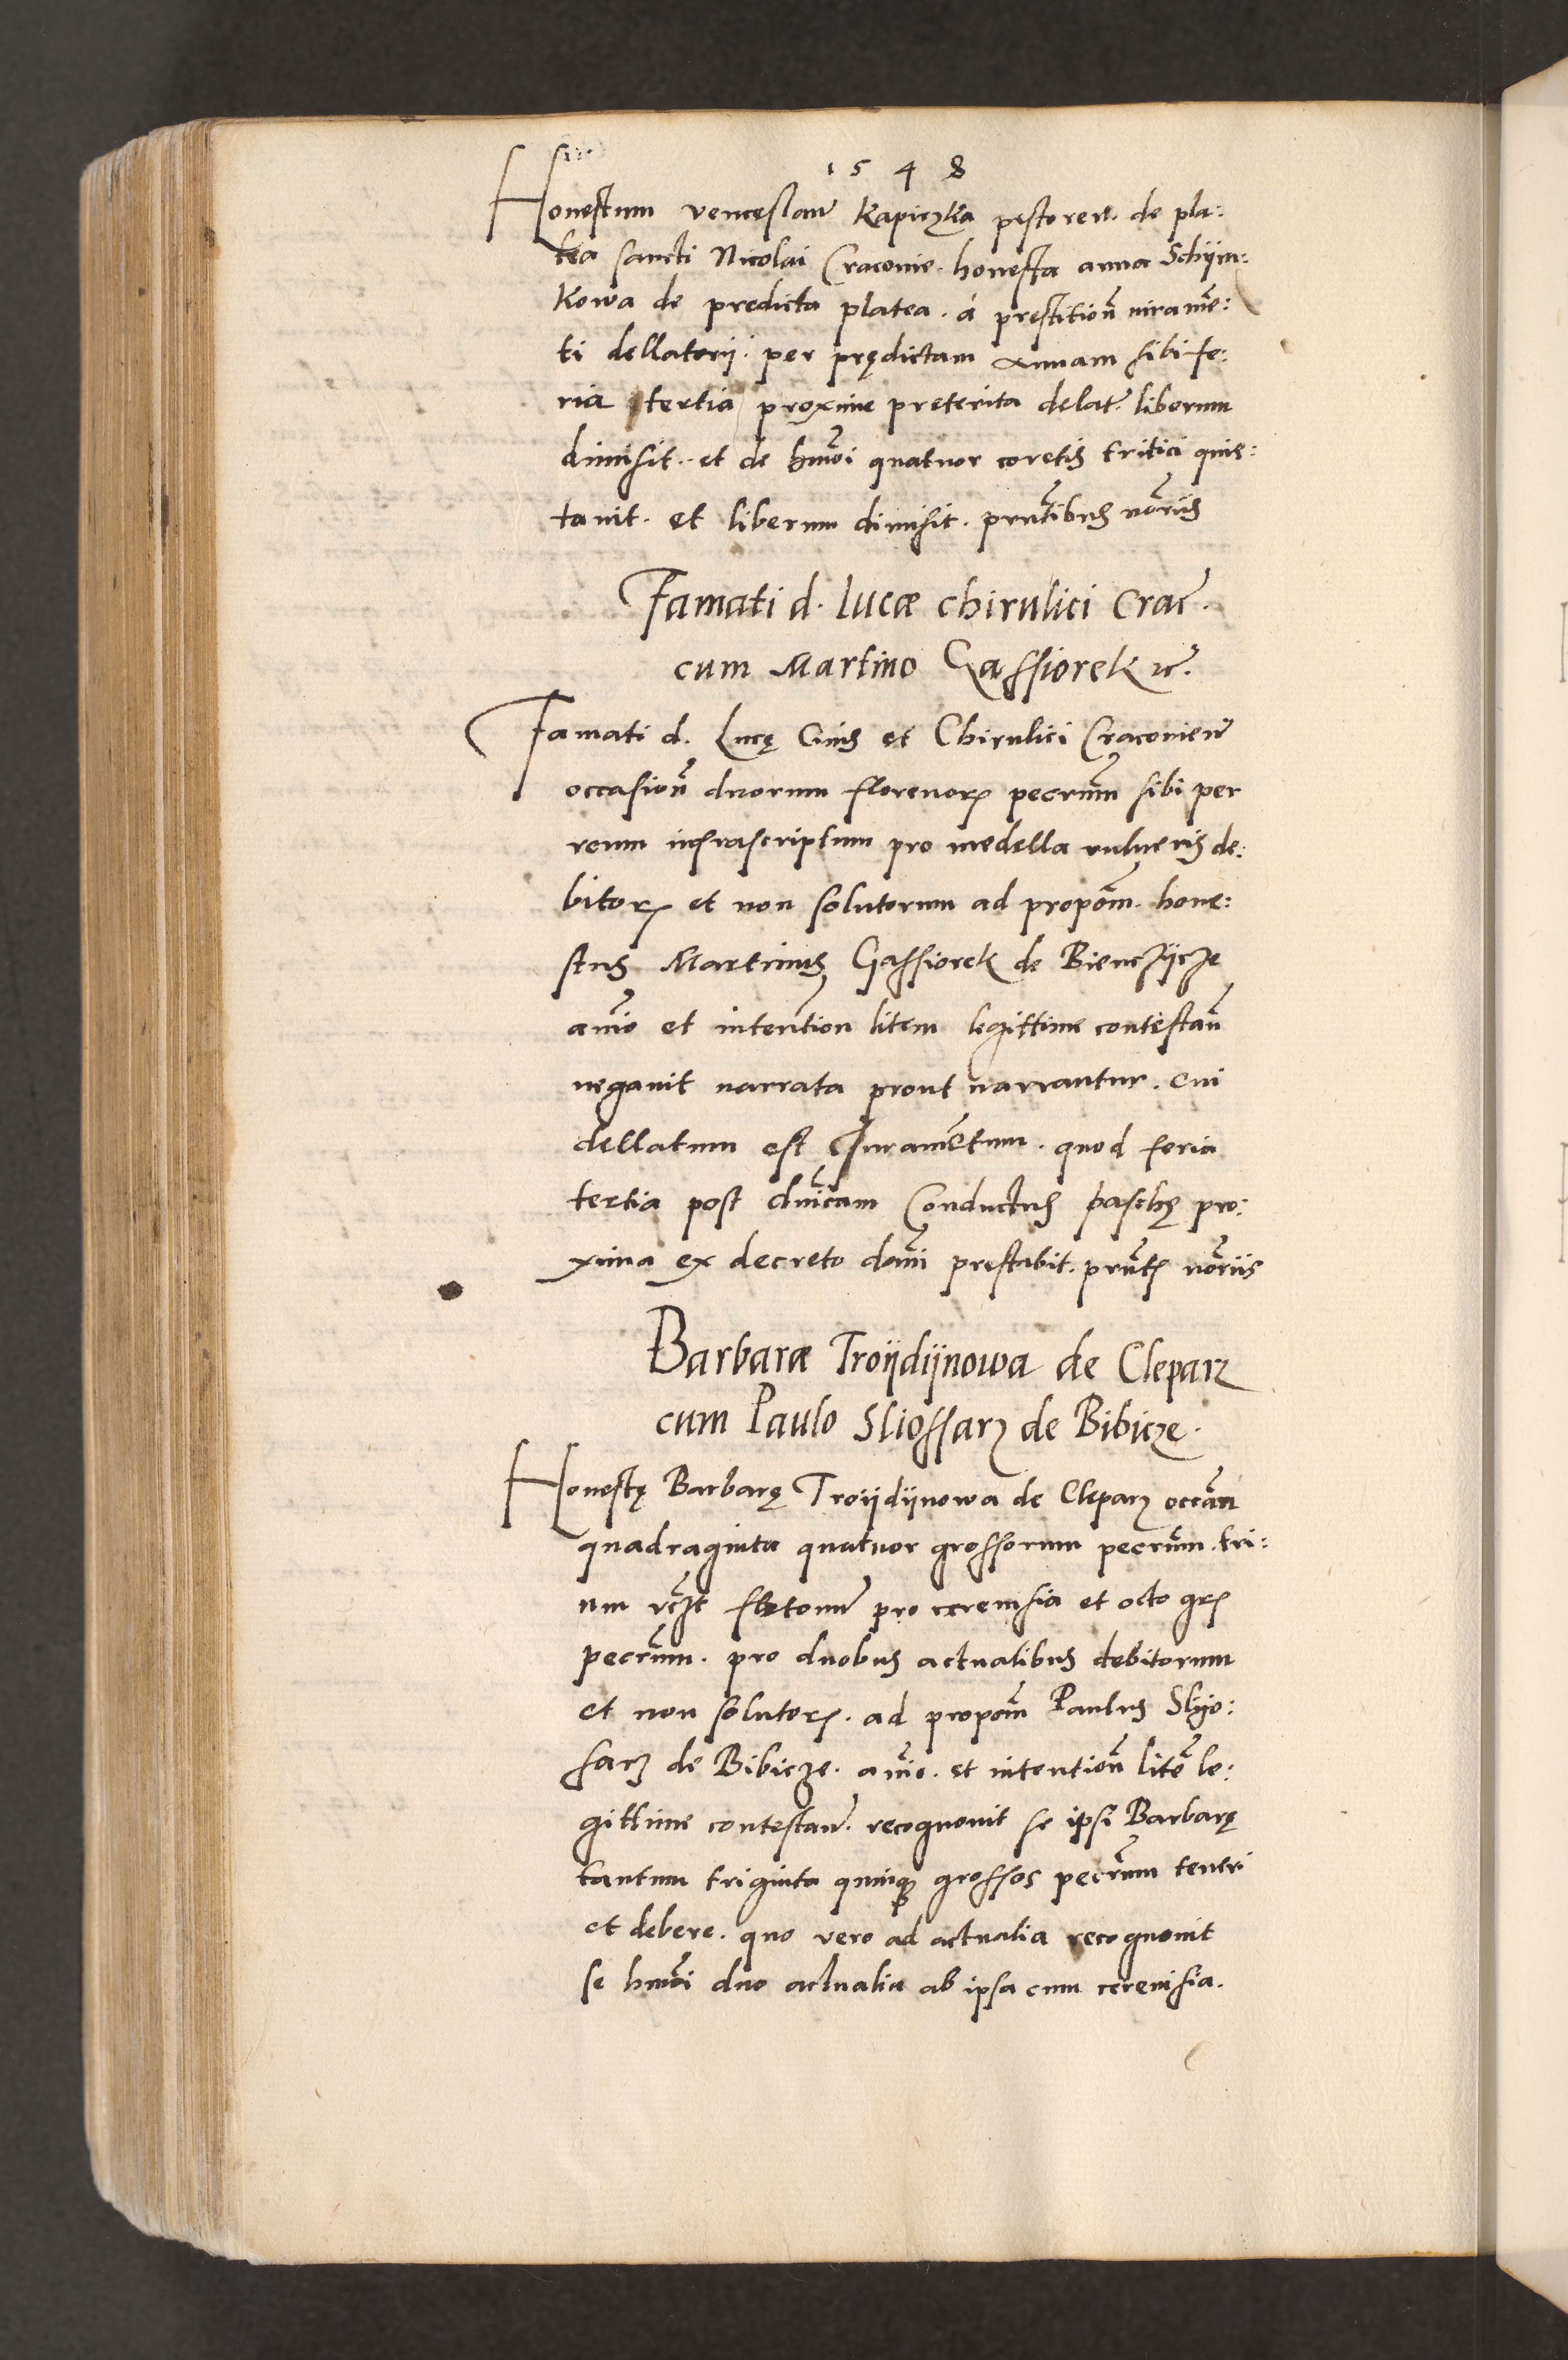 1548
Honestum venceslaum̃ Kapiczka pistorem. de pla:
tea sancti Nicolai Craconie. honesta anna Schijm:
kowa de predicta platea. á prestitioñ iuramẽ:
ti dellatorij. per prędictam Annam sibi fe:
ria tertia proxime preterita delat̃. liberum
dimisit. et de hm̃oi quatuor coretis tritici quie:
tauit. et liberum dimisit. pr̃ntibus nõrijs
Famati d. lucæ chirulici Crac̃.
cum Martino Gassiorek ꝛc̃.
Famati d. Lucę Ciuis et Chirulici Cracouieñ
occasioñ duorum florenorꝝ pecũm sibi per
reum infrascriptum pro medella vulneris de:
bitorꝝ et non solutorum ad propõm. hone:
stus Martinus Gassiorek de Bienczÿcze
animo et intention litem legittime contestañ
negauit narrata prout narrantur. cui
dellatum est Iuramẽtum. quod feria
tertia post dñicam Conductus paschę pro:
xima ex decreto domi prestabit. pr̃ntꝭ nõrijs
Barbaræ Troijdijnowa de Cleparz
cum Paulo Sliossarz de Bibicze.
Honestę Barbarę Troijdijnowa de Cleparz occãn
quadraginta quatuor grossorum pecũm. tri:
um pro cereuisia et octo grꝭ
pecũm. pro duobus actualibus debitorum
et non solutorꝝ. ad propõm Paulus Slijo:
sarz de Bibicze. animo. et intentioñ litẽ le:
gittime contestañ. recognouit se ipsi Barbarę
tantum triginta quinqꝫ grossos pecũm teneri
et debere. quo vero ad actualia recognouit
se hm̃oi duo actualia ab ipsa cum cereuisia.